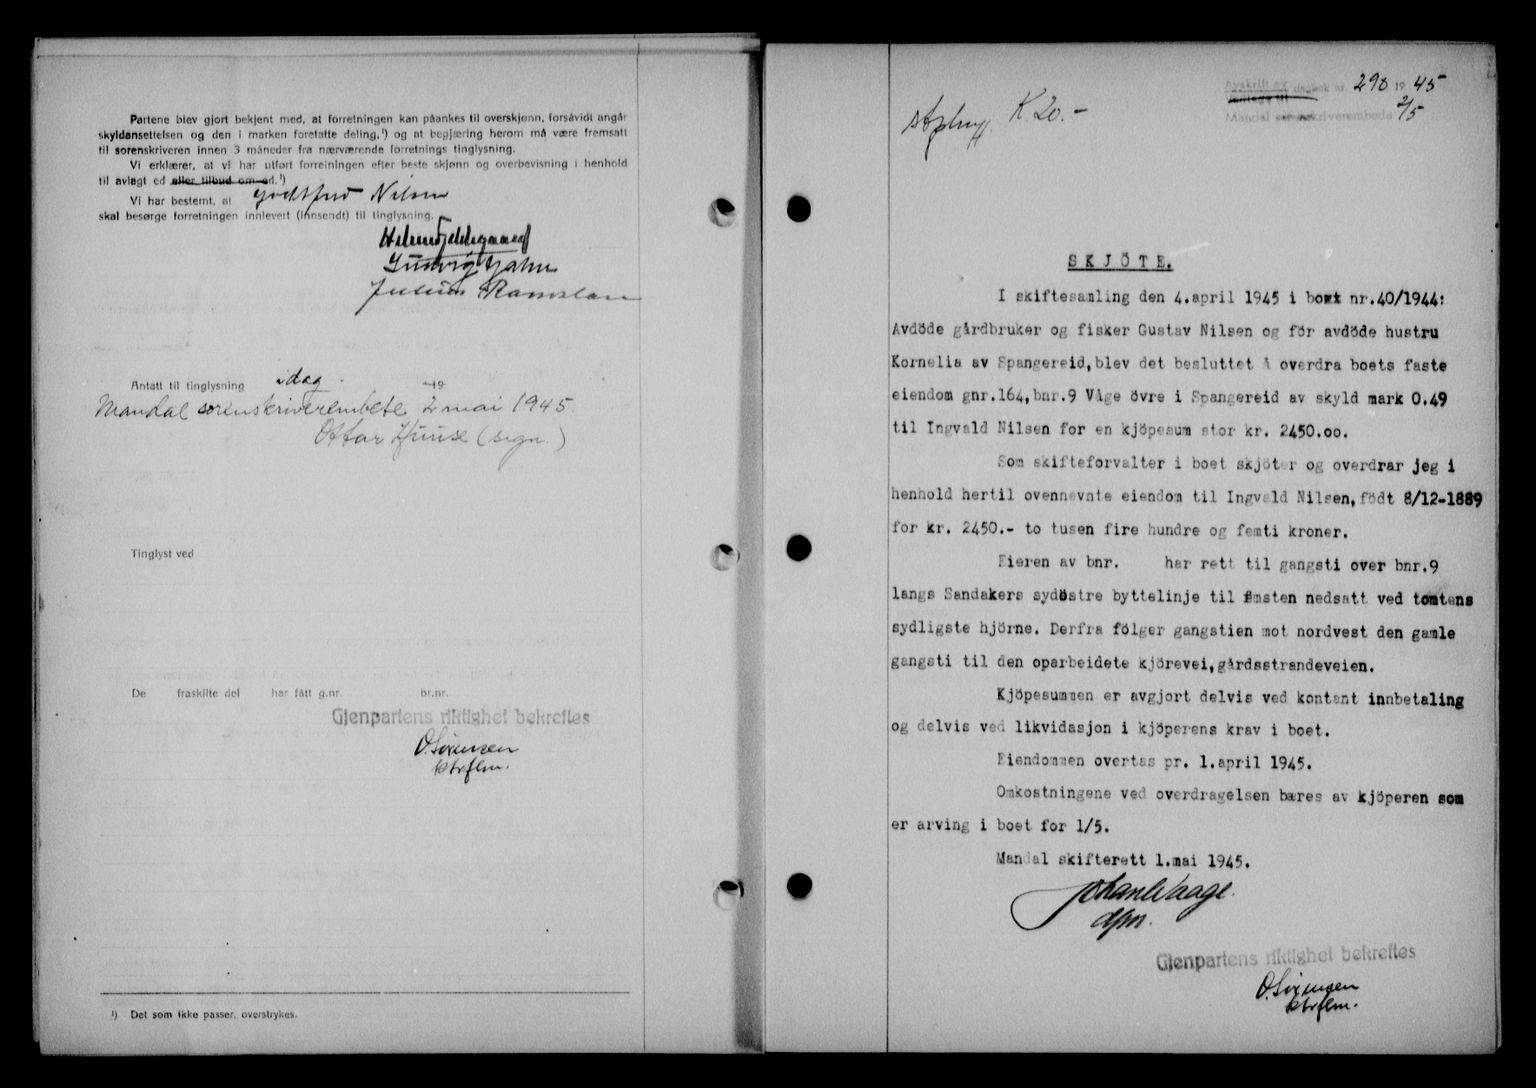 Partene blev gjort bekjent med, at forretningen kan påankes til overskjønn, forsåvidt angår
skyldansettelsen og den i marken foretatte deling,¹) og at begjæring herom må være fremsatt
til sorenskriveren innen 3 måneder fra nærværende forretnings tinglysning.
Vi erklærer, at vi har utført forretningen efter beste skjønn og overbevisning i henhold
til avlagt ed eller tilbud om ed.¹)
Vi har bestemt, at Godtfred Nilsen
skal besørge forretningen innlevert (innsendt) til tinglysning.
Ludvig Jahn
Julius Ramslan
Antatt til tinglysning idag. 19
Mandal sorenskriverembete 2 mai 1945.
Ottar Huuse (sign.)
Tinglyst ved
De fraskilte del har fått g.nr. br.nr.
Gjenpartens riktighet bekreftes
O.Sørensen
ktrflm.
¹) Det som ikke passer, overstrykes.
K 20.-
Avskrift av dagbok nr. 290 1945
Mandal sorenskriverembede 2/5
SKJÖTE.
I skiftesamling den 4.april 1945 i boet nr.40/1944:
Avdöde gårdbruker og fisker Gustav Nilsen og för avdöde hustru
Kornelia av Spangereid,blev det besluttet å overdra boets faste
eiendom gnr.164,bnr.9 Våge övre i Spangereid av skyld mark 0.49
til Ingvald Nilsen for en kjöpesum stor kr. 2450.oo.
Som skifteforvalter i boet skjöter og overdrar jeg i
henhold hertil ovennevnte eiendom til Ingvald Nilsen,födt 8/12-1889
for kr. 2450.- to tusen fire hundre og femti kroner.
Eieren av bnr. har rett til gangsti over bnr.9
langs Sandakers sydöstre byttelinje til åmsten nedsatt ved tomtens
sydligste hjörne. Derfra fölger gangstien mot nordvest den gamle
gangsti til den oparbeidete kjörevei,gårdsstrandeveien.
Kjöpesummen er avgjort delvis ved kontant innbetaling
og delvis ved likvidasjon i kjöperens krav i boet.
Eiendommen overtas pr. 1.april 1945.
Omkostningene ved overdragelsen bæres av kjöperen som
er arving i boet for 1/5.
Mandal skifterett 1.mai 1945.
Johan Waage.
dfm.
Gjenpartens riktighet bekreftes
O.Sørensen
ktrflm.